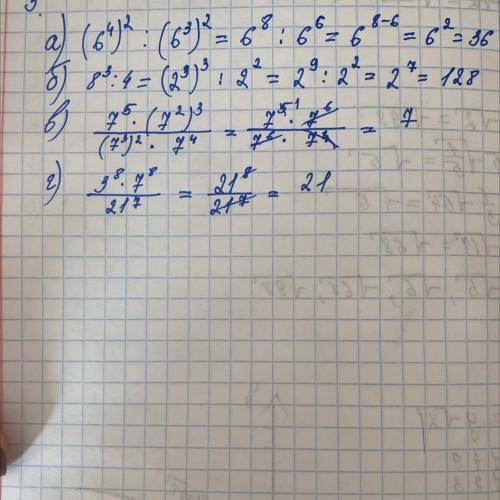 а) (6⁴)² : (6³)² = 6⁸ : 6⁶ = 6⁸⁻⁶ = 6² = 36
б) 8³ : 4 = (2³)³ : 2² = 2⁹ : 2² = 2⁷ = 128
в) 7⁵ · (7²)³ / (7³)² · 7⁴ = 7⁵ ¹ · 7⁶ / 7⁶ · 7⁴ = 7
г) 3⁸ · 7⁸ / 21⁷ = 21⁸ / 21⁷ = 21